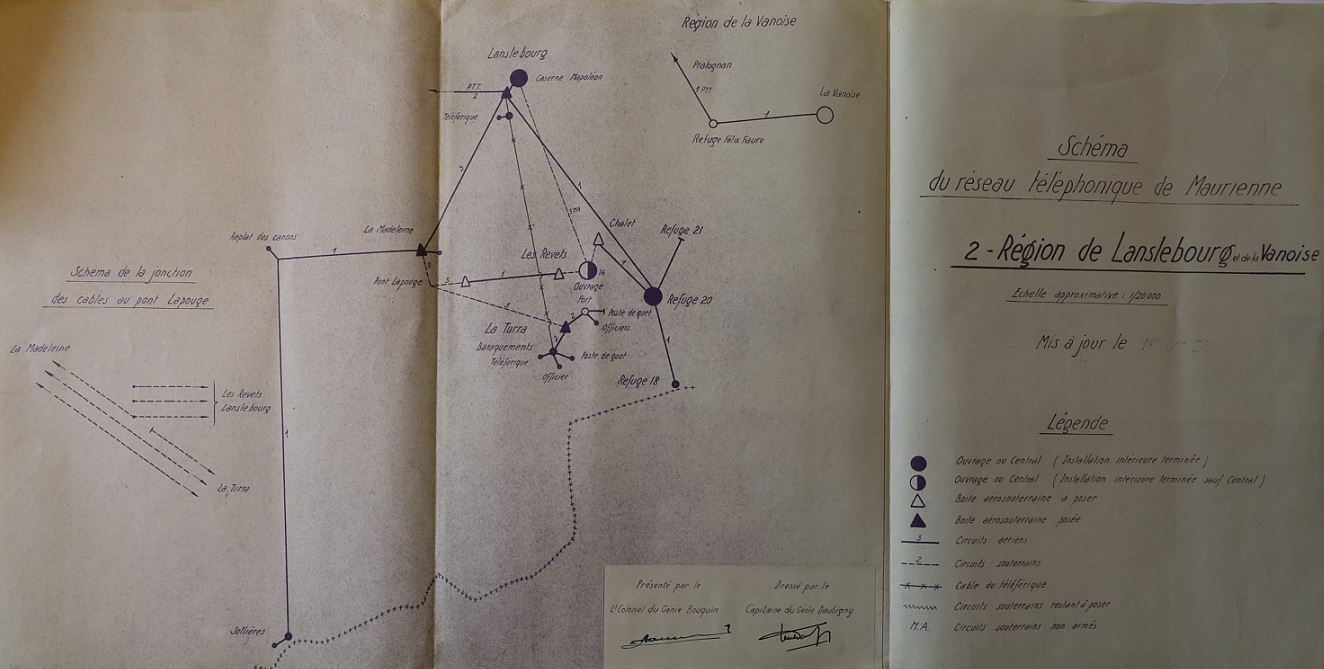 Région de la Vanoise
Pralognan
1 PTT
La Vanoise
1
Refuge Félix Faure
Lanslebourg
Caserne Napoléon
P.T.T.
2
Téléférique
3
1
3 MA
Chalet
Refuge 21
La Madeleine
Replat des canons
1
Les Revets
Pont Lapouge
3
1
16
Ouvrage
1
Refuge 20
Fort
Poste de guet
2
Officiers
La Turra
Baraquements
Téléférique
Poste de guet
Officier
1
Refuge 18
1
Sollières
Schéma de la jonction
des cables au pont Lapouge
La Madeleine
Les Revets
Lanslebourg
La Turra
Présenté par le
Lt Colonel du Génie Bouquin
Dressé par le
Capitaine du Génie Daubigny
Schéma
du réseau téléphonique de Maurienne
2 - Région de Lanslebourg et de la Vanoise
Echelle approximative : 1/20.000
Mis à jour le
Légende
Ouvrage ou Central ( Installation intérieure terminée )
Ouvrage ou Central ( Installation intérieure terminée sauf Central )
Boite aérosouterraine à poser
Boite aérosouterraine posée
3 Circuits aériens
2 Circuits souterrains
Cable du téléférique
Circuits souterrains restant à poser
M.A. Circuits souterrains non armés